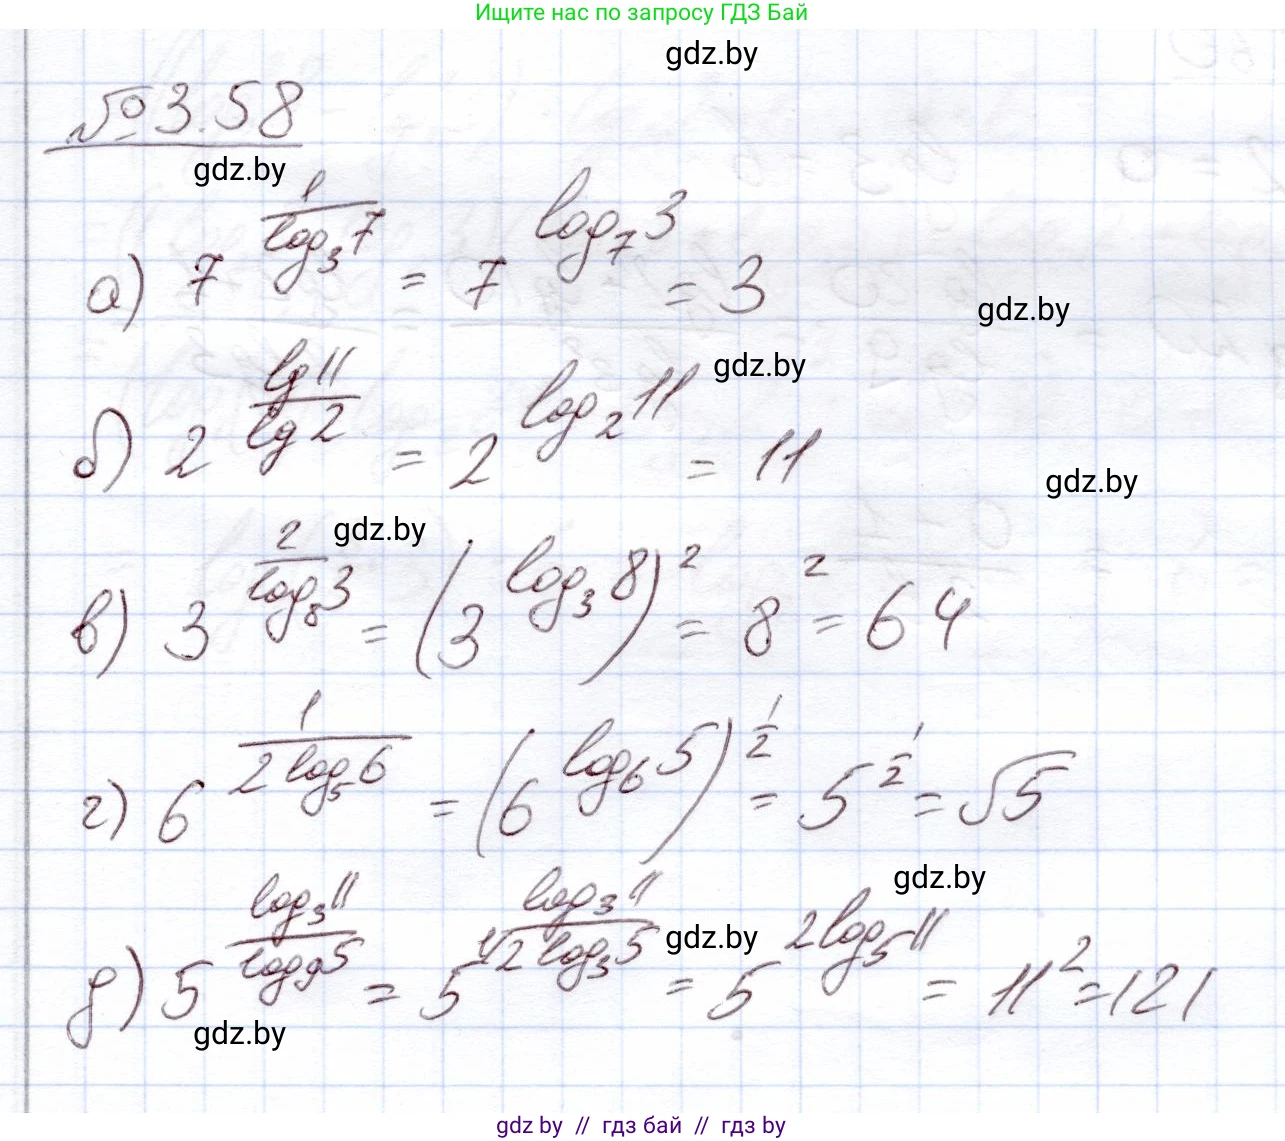 Ищите нас по запросу ГДЗ Бай
gdz.by
№3.58
gdz.by
а) 7^(1/log₃7) = 7^(log₇3) = 3
gdz.by
gdz.by
б) 2^(lg11/lg2) = 2^(log₂11) = 11
gdz.by
gdz.by
в) 3^(2/log₈3) = (3^(log₃8))² = 8² = 64
г) 6^(1/(2log₅6)) = (6^(log₆5))^(1/2) = 5^(1/2) = √5
gdz.by
gdz.by
д) 5^(log₃11/log₉5) = 5^(log₃11/(1/2 log₃5)) = 5^(2log₅11) = 11² = 121
gdz.by
gdz by // гдз бай // гдз by